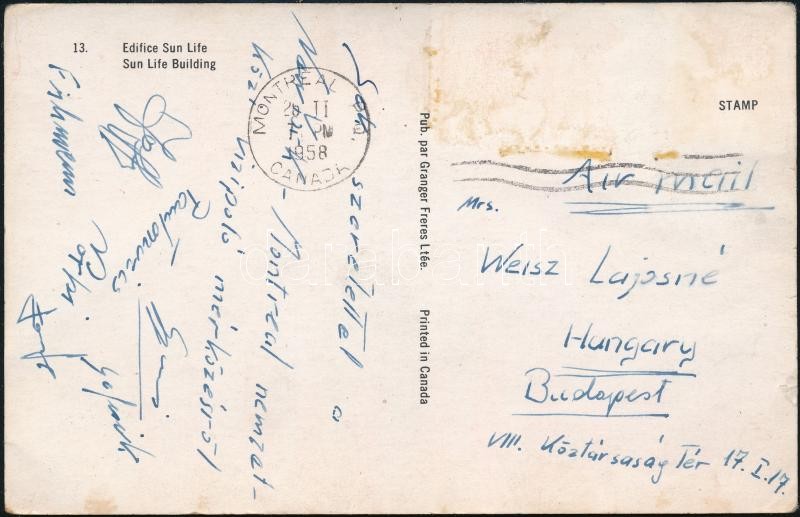 13.
Edifice Sun Life
Sun Life Building
Sok szeretettel a
New-York - Montreal nemzet-
közi vizipoló mérkőzésről
MONTREAL P.Q.
II
PM
1958
CANADA
Pub. par Granger Freres Ltée.
Printed in Canada
STAMP
Air mail
Mrs.
Weisz Lajosné
Hungary
Budapest
VIII. Köztársaság Tér 17. I. 17.